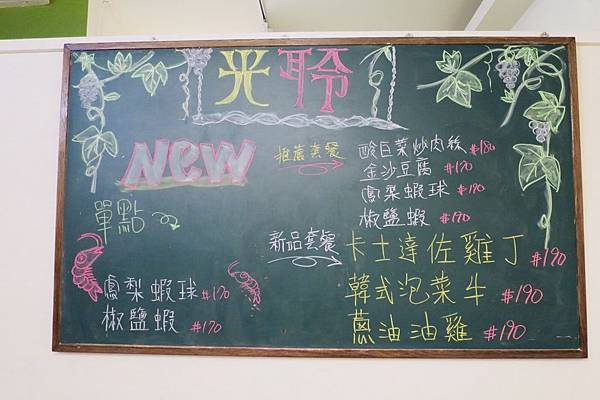 光聆
NEW
推薦套餐 酸白菜炒肉絲 #180
金沙豆腐 #170
鳳梨蝦球 #190
椒鹽蝦 #190
單點
鳳梨蝦球 #170
椒鹽蝦 #170
新品套餐 卡士達佐雞丁 #190
韓式泡菜牛 #190
蔥油油雞 #190